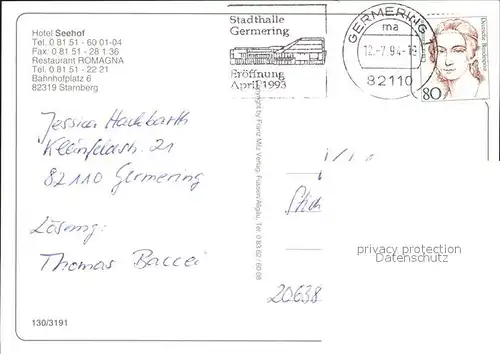 Hotel Seehof
Tel. 0 81 51 - 60 01-04
Fax: 0 81 51 - 28 1 36
Restaurant ROMAGNA
Tel. 0 81 51 - 22 21
Bahnhofplatz 6
82319 Starnberg
Stadthalle
Germering
Eröffnung
April 1993
GERMERING 1
ma
12.-7.94-18
82110
Deutsche Bundespost
80
Jessica Hackbarth
Kleinfeldstr. 21
82110 Germering
Lösung:
Thomas Baccei
Copyright by Franz Milz Verlag, Füssen/Allgäu, Tel. 0 83 62 / 60 08
Stich
20638
privacy protection
Datenschutz
130/3191